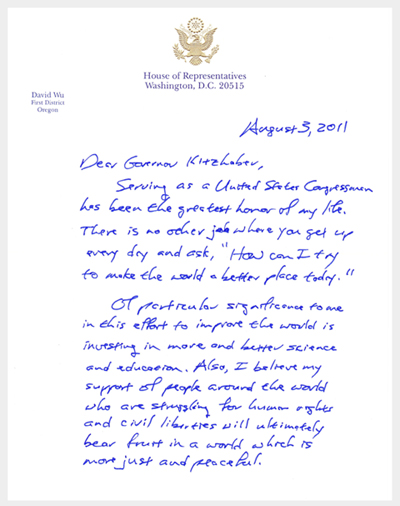 House of Representatives
Washington, D.C. 20515
David Wu
First District
Oregon
August 3, 2011
Dear Governor Kitzhaber,
Serving as a United States Congressman
has been the greatest honor of my life.
There is no other job where you get up
every day and ask, "How can I try
to make the world a better place today."
Of particular significance to me
in this effort to improve the world is
investing in more and better science
and education. Also, I believe my
support of people around the world
who are struggling for human rights
and civil liberties will ultimately
bear fruit in a world which is
more just and peaceful.